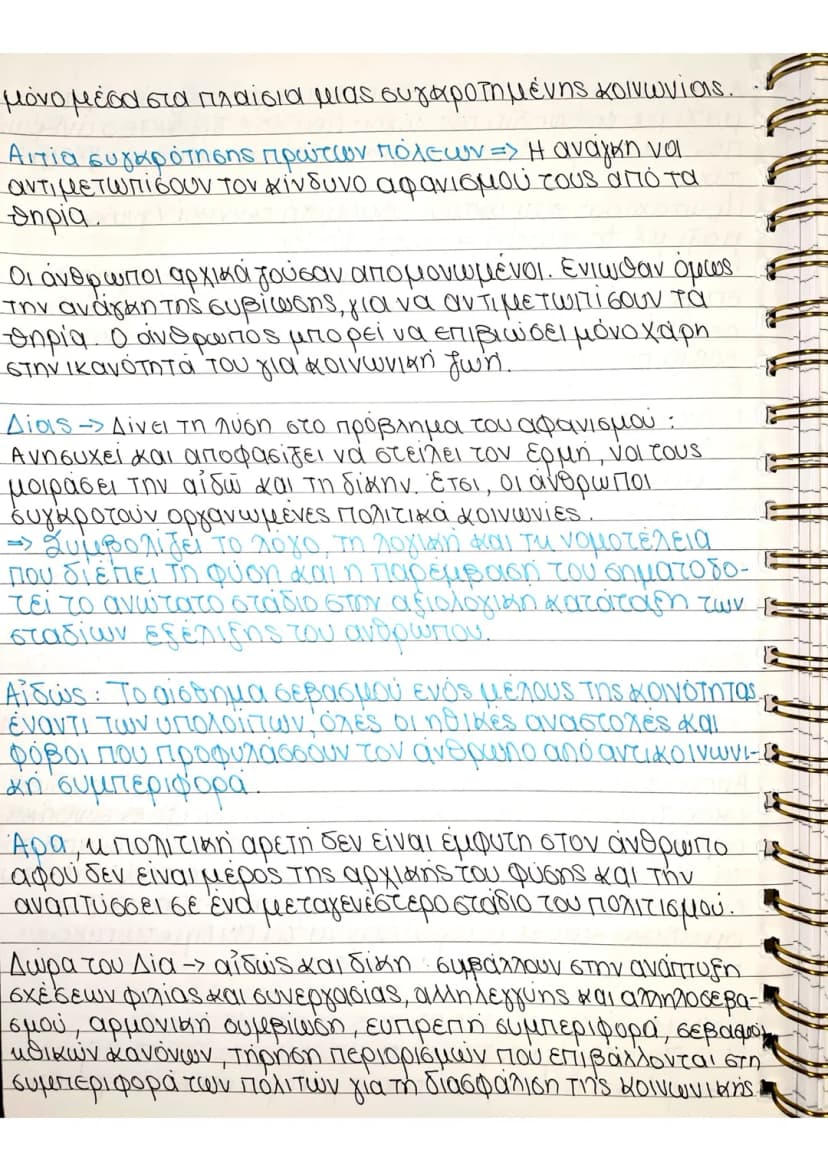 μόνο μέσα στα πλαίσια μιας συγκροτημένης κοινωνίας.
Αιτία συγκρότησης πρώτων πόλεων => Η ανάγκη να
αντιμετωπίσουν τον κίνδυνο αφανισμού τους από τα
θηρία.
Οι άνθρωποι αρχικά ζούσαν απομονωμένοι. Ένιωθαν όμως
την ανάγκη της συβίωσης, για να αντιμετωπίσουν τα
θηρία. Ο άνθρωπος μπορεί να επιβιώσει μόνο χάρη
στην ικανότητά του για κοινωνική ζωή.
Δίας -> Δίνει τη λύση στο πρόβλημα του αφανισμού :
Ανησυχεί και αποφασίζει να στείλει τον Ερμή, να τους
μοιράσει την αἰδῶ και τη δίκην. Έτσι, οι άνθρωποι
συγκροτούν οργανωμένες πολιτικά κοινωνίες.
=> Συμβολίζει το λόγο, τη λογική και τη νομοτέλεια
που διέπει τη φύση και η παρέμβασή του σηματοδο-
τεί το ανώτατο στάδιο στην αξιολογική κατάταξη των
σταδίων εξέλιξης του ανθρώπου.
Αἰδώς : Το αίσθημα σεβασμού ενός μέλους της κοινότητας
έναντι των υπολοίπων, όλες οι ηθικές αναστολές και
φόβοι που προφυλάσσουν τον άνθρωπο από αντικοινωνι-
κή συμπεριφορά.
Άρα, η πολιτική αρετή δεν είναι έμφυτη στον άνθρωπο
αφού δεν είναι μέρος της αρχικής του φύσης και την
αναπτύσσει σε ένα μεταγενέστερο στάδιο του πολιτισμού.
Δώρα του Δία -> αἰδώς και δίκη : συμβάλλουν στην ανάπτυξη
σχέσεων φιλίας και συνεργασίας, αλληλεγγύης και αλληλοσεβα-
σμού, αρμονική συμβίωση, ευπρεπή συμπεριφορά, σεβασμό
ηθικών κανόνων, τήρηση περιορισμών που επιβάλλονται στη
συμπεριφορά των πολιτών για τη διασφάλιση της κοινωνικής